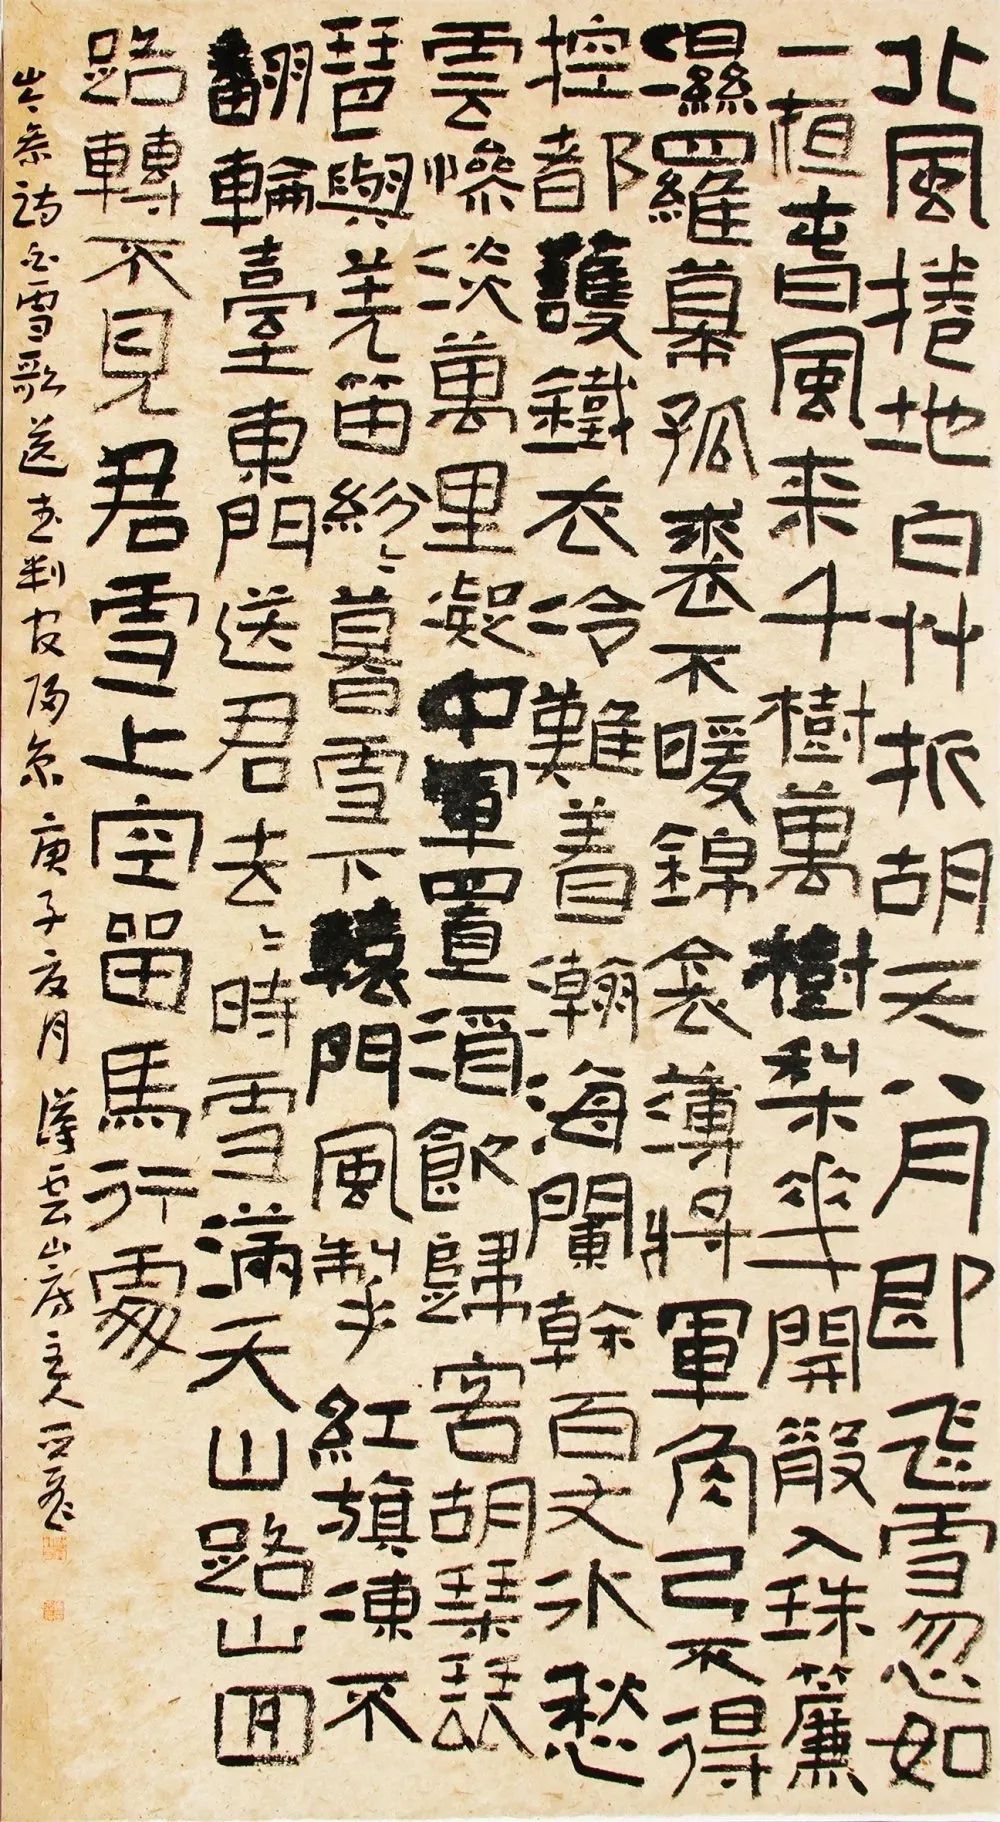 北風捲地白艸折胡天八月即飛雪忽如
一桓旾風来千樹萬樹梨華開散入珠簾
濕羅幕孤裘不暖錦衾薄將軍角弓不得
控都護鐵衣冷難着瀚海闌幹百丈冰愁
雲慘淡萬里凝中軍置酒飲歸客胡琴琵
琶與羌笛紛〻暮雪下轅門風掣紅旗凍不
翻輪臺東門送君去〻時雪滿天山路山回
路轉不見君雪上空留馬行處
岑參詩白雪歌送武判官歸京庚子夏月雲山房主人